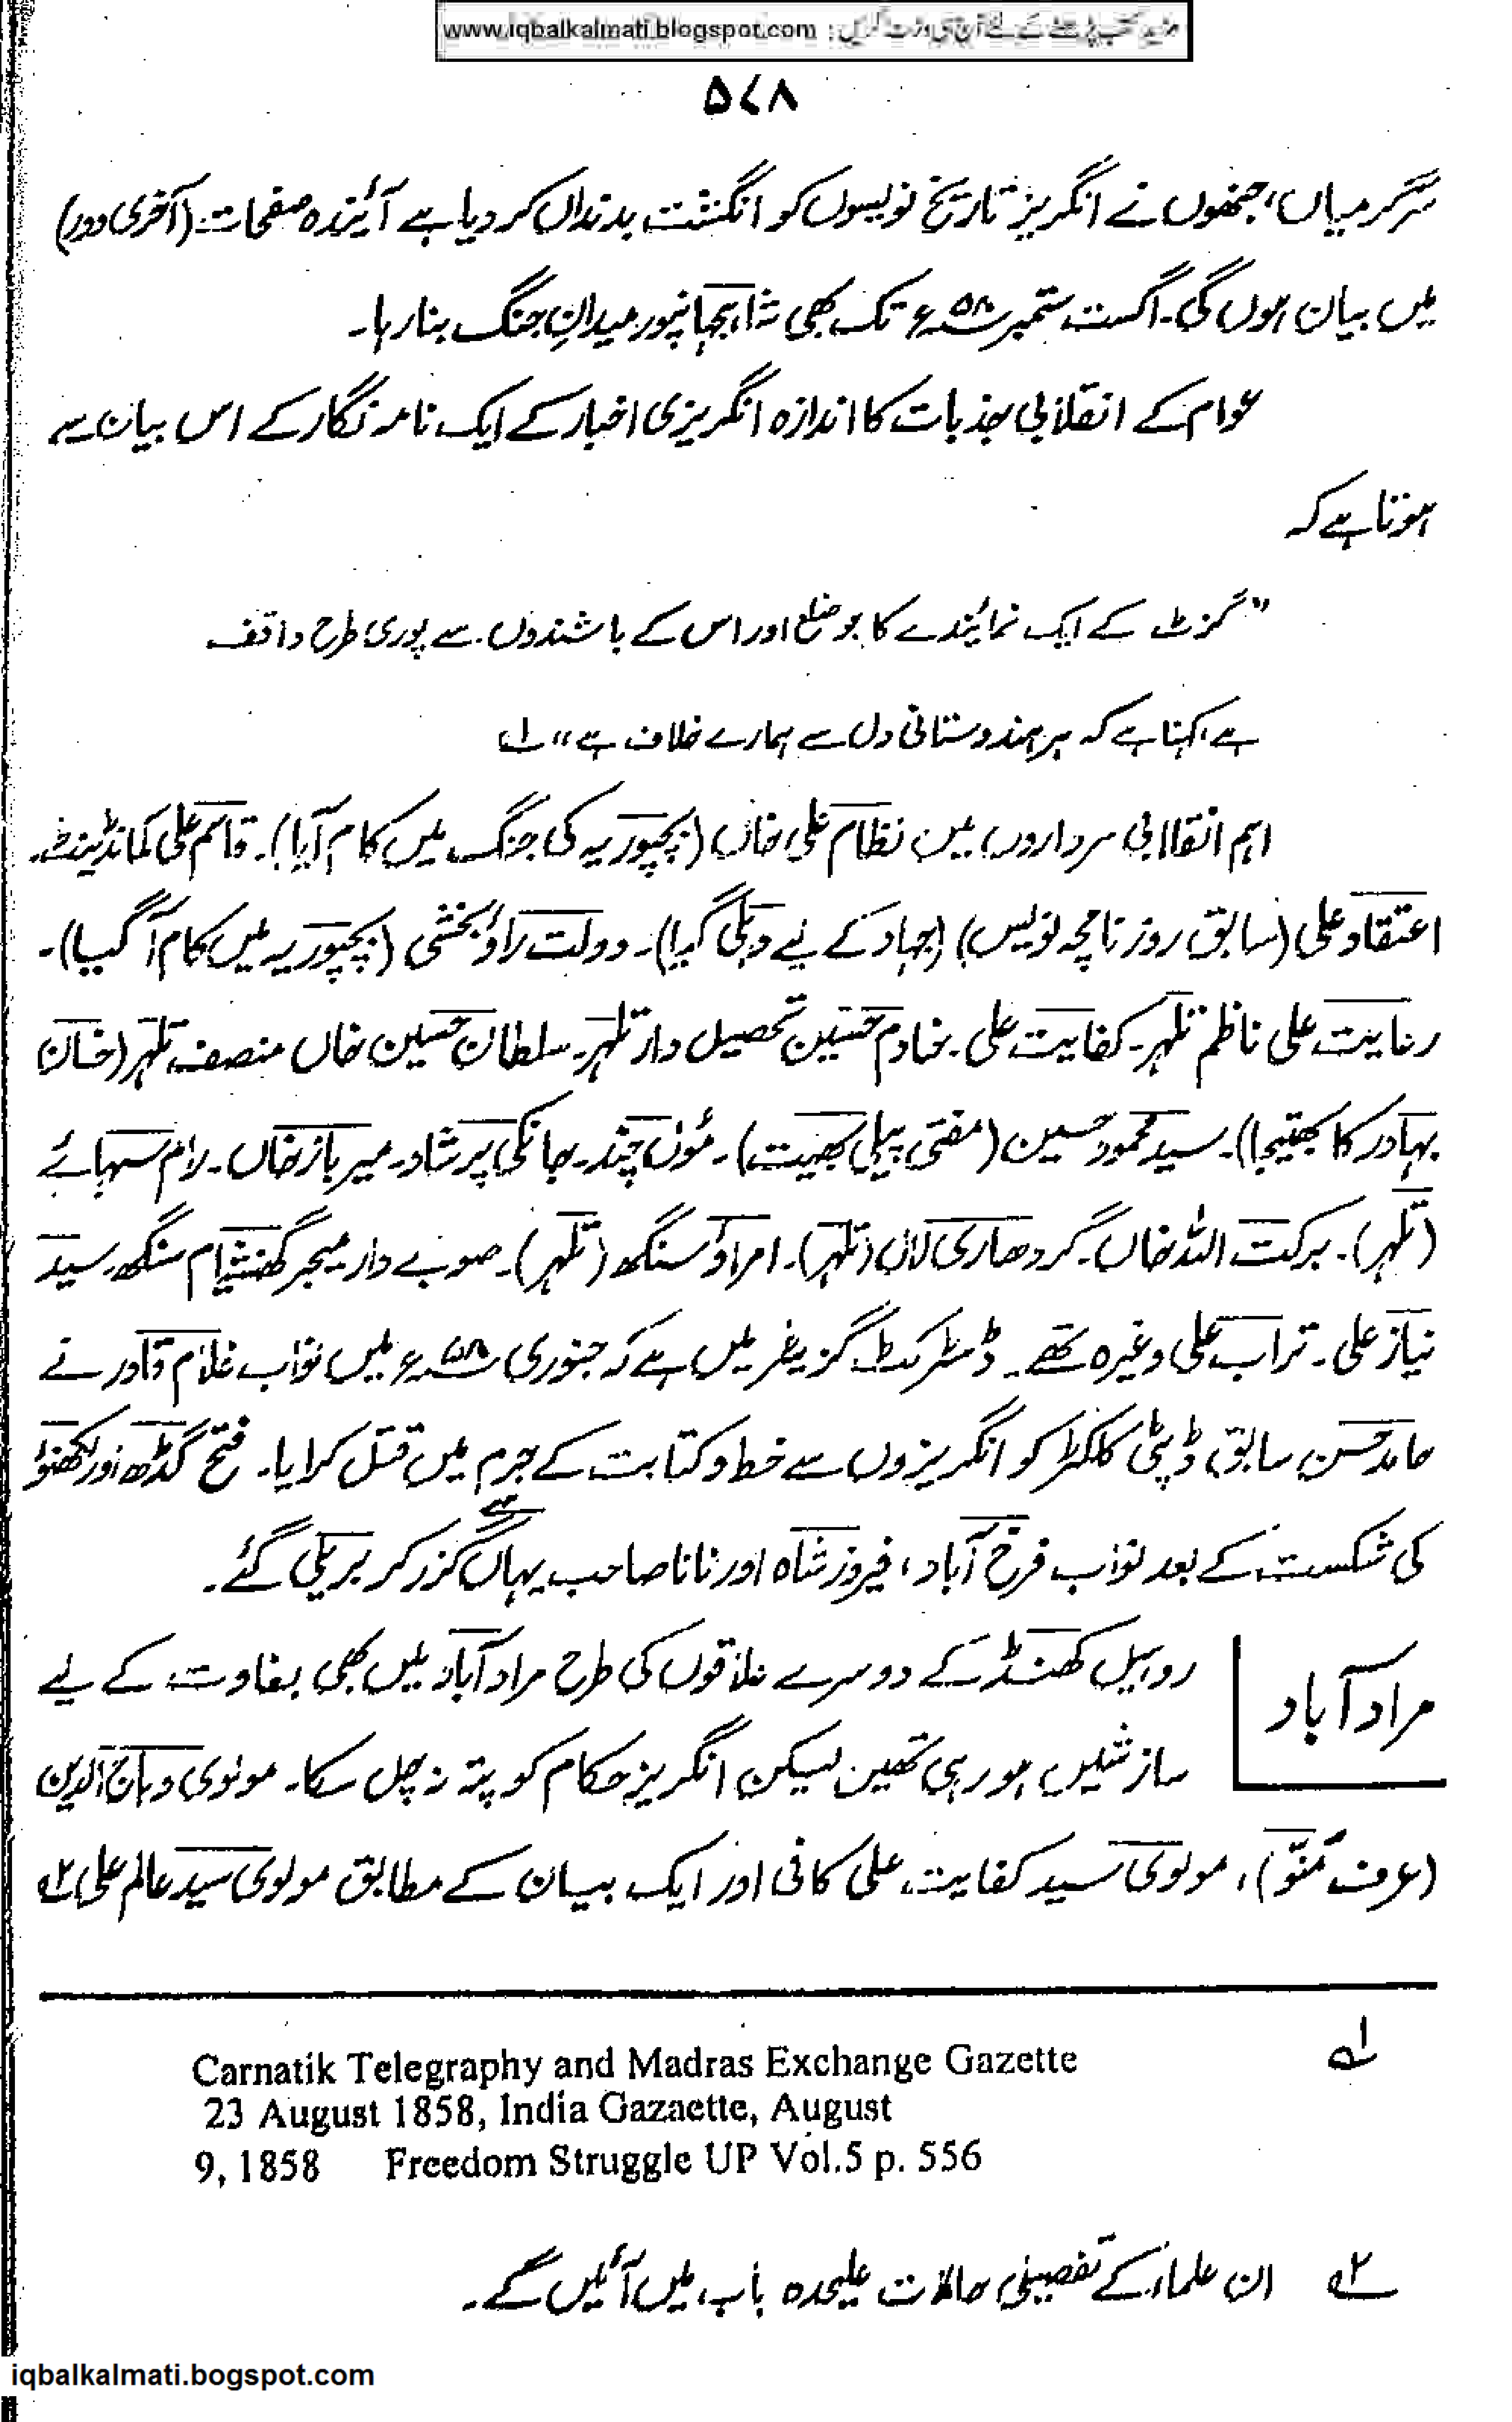 مزید کتب پڑھنے کے لئے آج ہی وزٹ کریں : www.iqbalkalmati.blogspot.com
۵۷۸
سرگرمیاں، جنھوں نے انگریز تاریخ نویسوں کو انگشت بدنداں کر دیا ہے آئیندہ صفحات (آخری دور)
میں بیان ہوں گی۔ اگست ستمبر ۵۸ء تک بھی شاہجہانپور میدانِ جنگ بنا رہا۔
عوام کے انقلابی جذبات کا اندازہ انگریزی اخبار کے ایک نامہ نگار کے اس بیان سے
ہوتا ہے کہ
”گزٹ کے ایک نمائیندے کا جو ضلع اور اس کے باشندوں سے پوری طرح واقف
ہے، کہنا ہے کہ ہر ہندوستانی دل سے ہمارے خلاف ہے“ ۱؎
اہم انقلابی سرداروں میں نظام علی خاں (پچپوریہ کی جنگ میں کام آیا)۔ قاسم علی کمانڈینٹ۔
اعتقاد علی (سابق روزنامچہ نویس) (جہاد کے لیے دہلی گیا)۔ دولت راؤ بخشی (پچپوریہ میں کام آ گیا)۔
رعایت علی ناظم تلہر۔ کفایت علی۔ خادم حسین تحصیل دار تلہر۔ سلطان حسین خاں منصف تلہر (خان
بہادر کا بھتیجا)۔ سید محمود حسین (مفتی پیلی بھیت)۔ مؤن چند۔ جانکی پرشاد۔ میر باز خاں۔ رام سہائے
(تلہر)۔ برکت اللہ خاں۔ گردھاری لال (تلہر)۔ امراؤ سنگھ (تلہر)۔ صوبے دار میجر گھنشیام سنگھ۔ سید
نیاز علی۔ تراب علی وغیرہ تھے۔ ڈسٹرکٹ گزیٹیر میں ہے کہ جنوری ۵۸ء میں نواب غلام قادر نے
حامد حسن سابق ڈپٹی کلکٹر کو انگریزوں سے خط و کتابت کے جرم میں قتل کرایا۔ فتح گڈھ اور لکھنؤ
کی شکست کے بعد نواب فرخ آباد، فیروز شاہ اور نانا صاحب یہاں سے گزر کر بریلی گئے۔
مراد آباد
روہیل کھنڈ کے دوسرے علاقوں کی طرح مراد آباد میں بھی بغاوت کے لیے
سازشیں ہو رہی تھیں لیکن انگریز حکام کو پتہ نہ چل سکا۔ مولوی وہاج الدین
(عرف منّو)، مولوی سید کفایت علی کافی اور ایک بیان کے مطابق مولوی سید عالم علی ۲؎
۱؎ Carnatik Telegraphy and Madras Exchange Gazette
23 August 1858, India Gazaette, August
9, 1858 Freedom Struggle UP Vol.5 p. 556
۲؎ ان علماء کے تفصیلی حالات علیحدہ باب میں آئیں گے۔
iqbalkalmati.bogspot.com